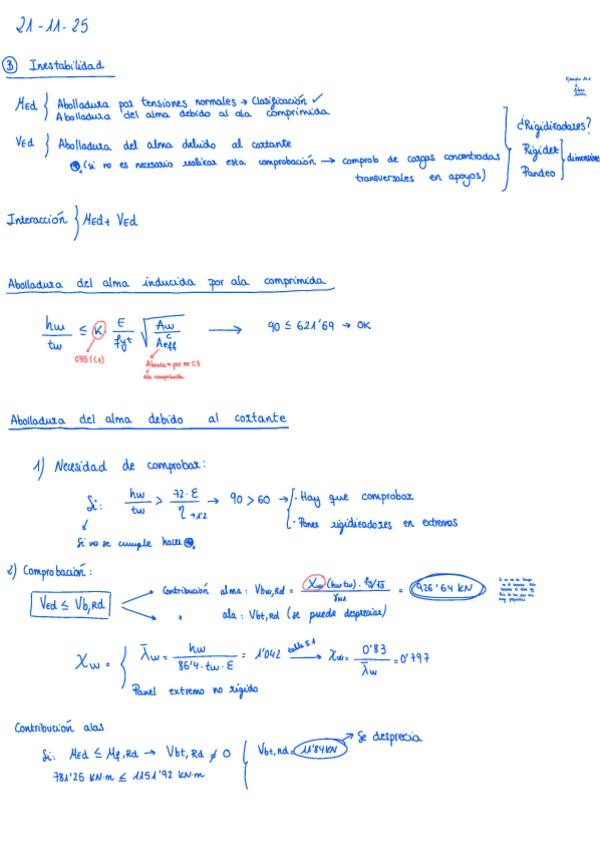 21-11-25
③ Inestabilidad
MEd } Abolladura por tensiones normales → Clasificación ✓
Abolladura del alma debido al ala comprimida
VEd } Abolladura del alma debido al cortante
(si no es necesario realizar esta comprobación → comprob de cargas concentradas
transversales en apoyos)
¿Rigidizadores?
Rigidez
Pandeo
dimensione
Interacción } MEd + VEd
Abolladura del alma inducida por ala comprimida
hw/tw ≤ K · E/fyt √(Aw/Aceff) → 90 ≤ 621'69 → OK
0'55 (C3)
ala comprimida
Abolladura del alma debido al cortante
1) Necesidad de comprobar:
Si: hw/tw > 72·ε/η → 1'2 → 90 > 60 → · Hay que comprobar
· Poner rigidizadores en extremos
Si no se cumple hacer
2) Comprobación:
VEd ≤ Vb,Rd
Contribución alma: Vbw,Rd = χw (hw tw) · fy/√3 / γM1 = 926'64 KN
" ala: Vbf,Rd (se puede despreciar)
χw = { λ̄w = hw/(86'4 · tw · ε) = 1'042 tabla 5.1 → χw = 0'83/λ̄w = 0'797
Panel extremo no rígido
Contribución alas
Si: MEd ≤ Mf,Rd → Vbf,Rd ≠ 0 { Vbf,Rd = 11'84 KN → Se desprecia
781'25 KN·m ≤ 1151'92 KN·m